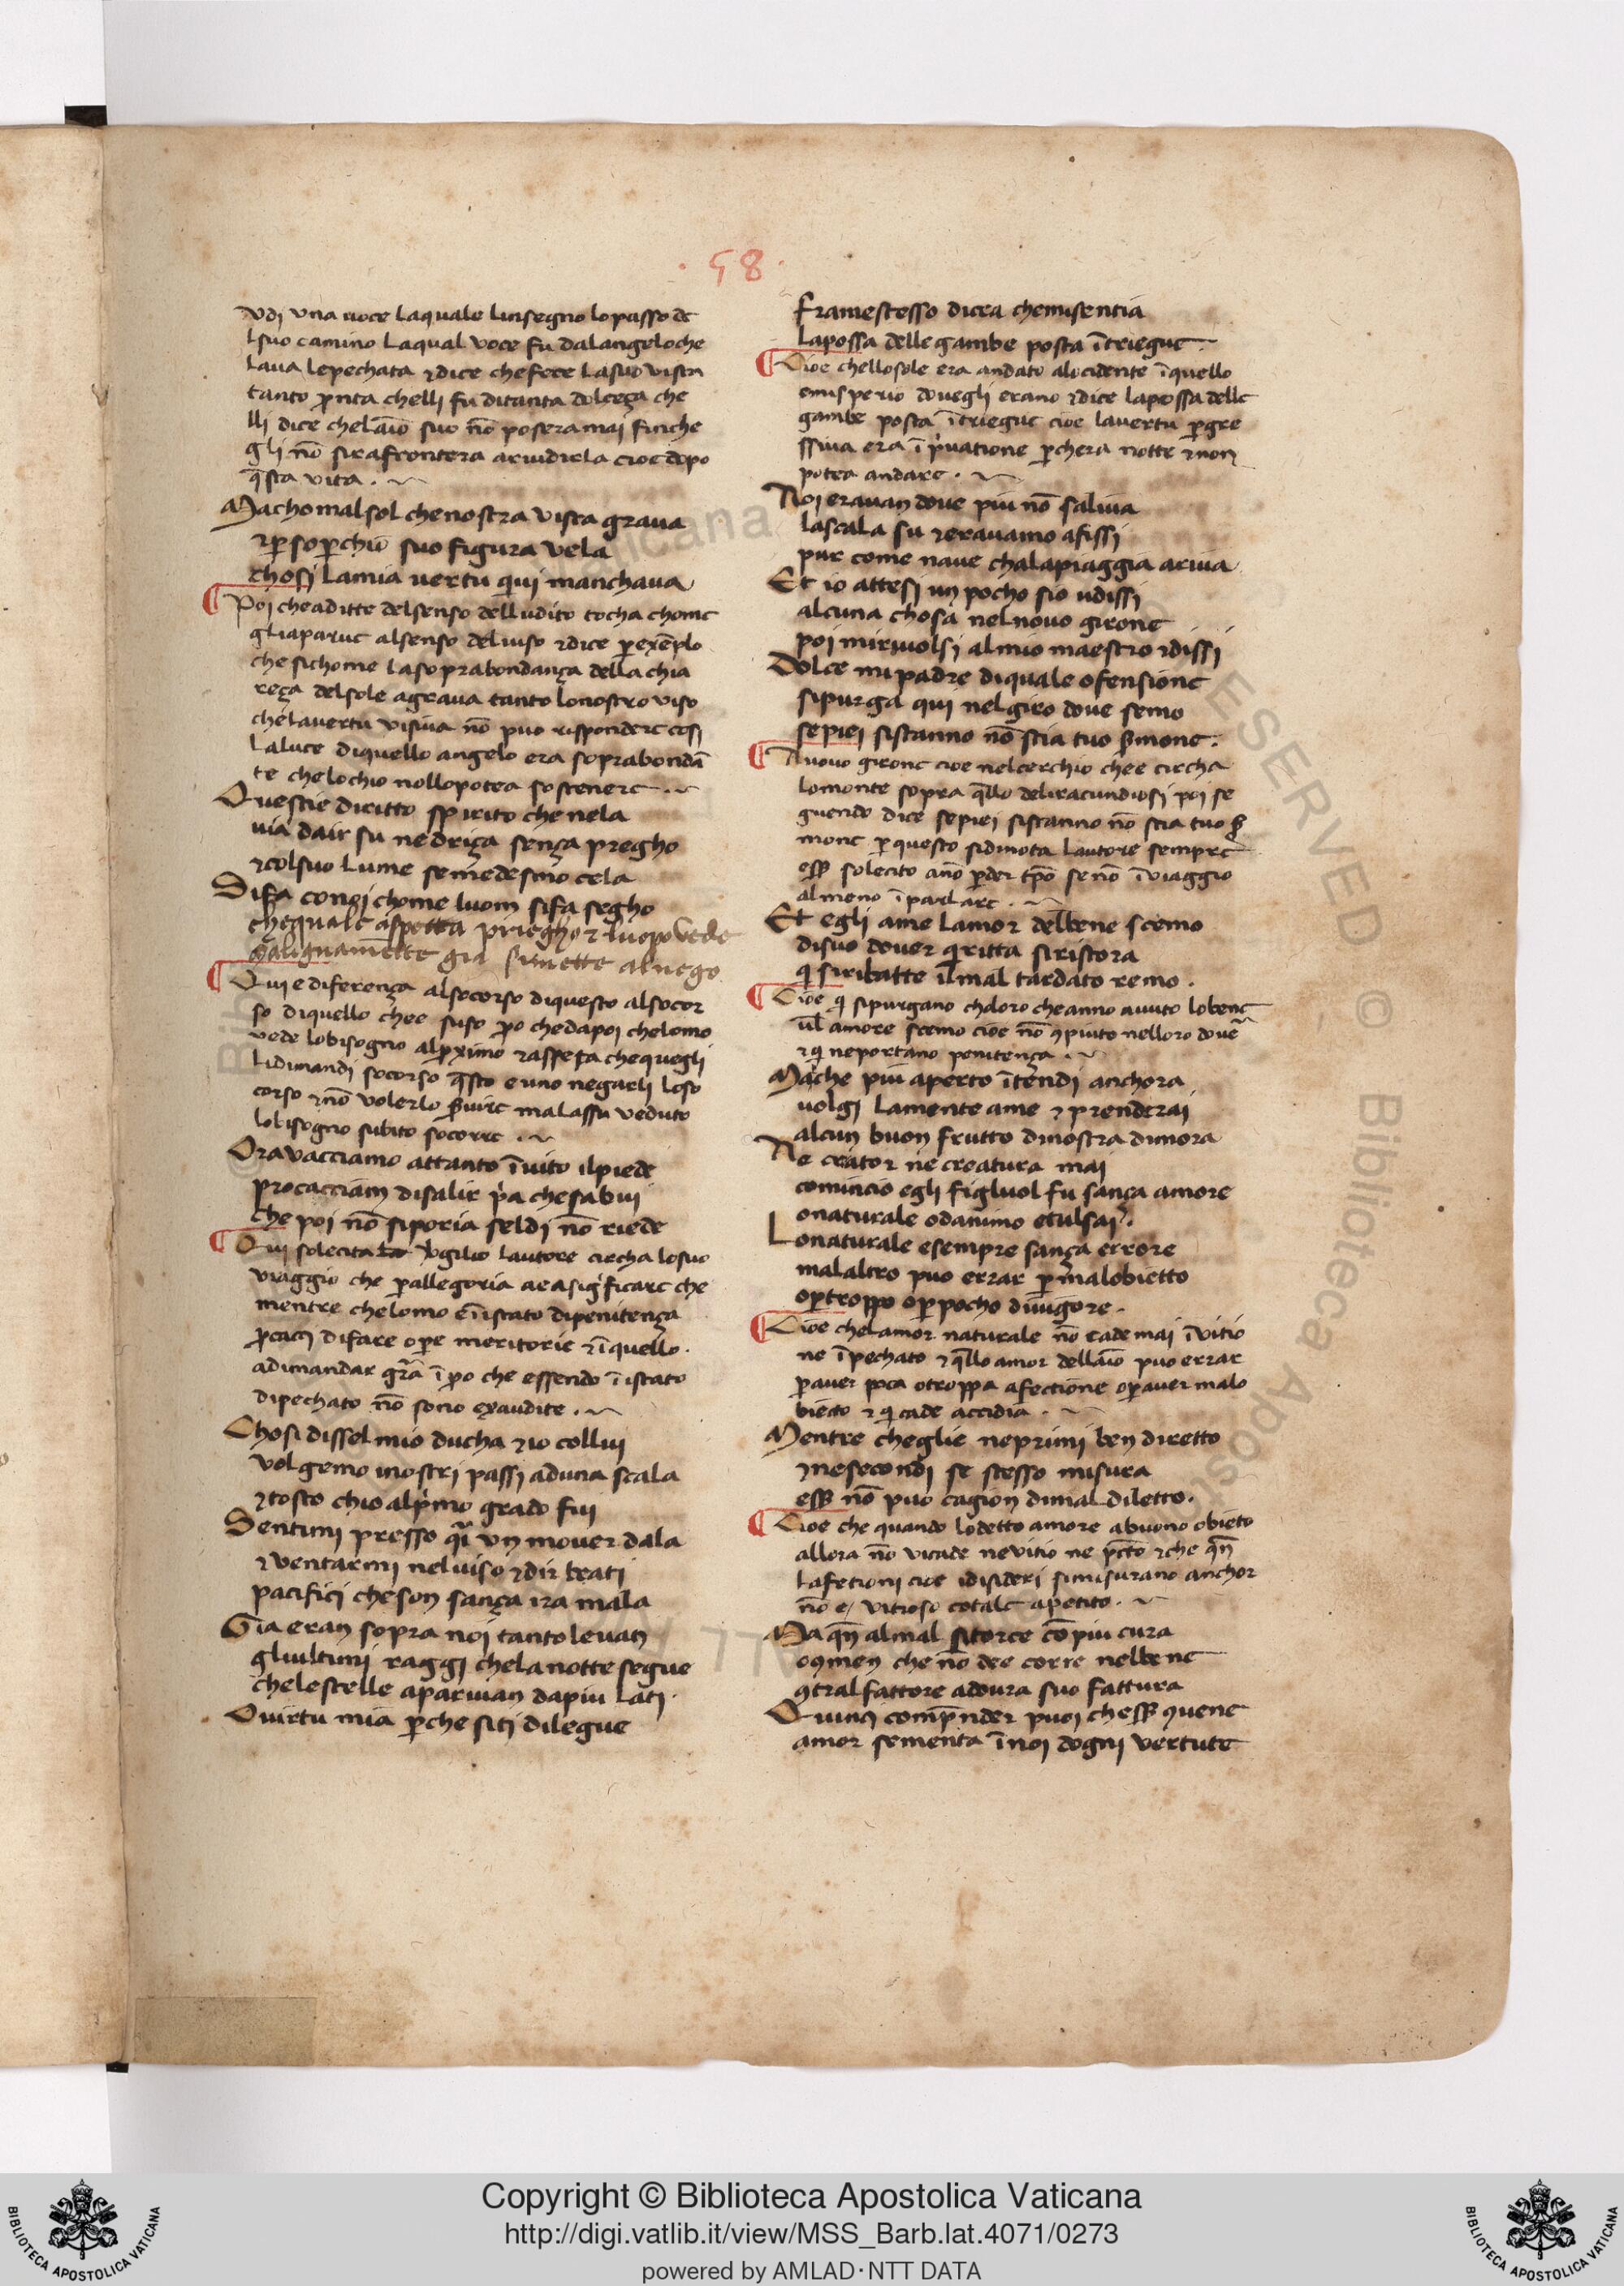 · 58 ·
vdi vna uoce laquale linsegno lo passo de
lsuo camino laqual voce fu dalangelo che
laua lepechata ⁊dice chefece lasuo vista
tanto p̄nta chelli fu ditanta dolceça che
lli dice chelaīo suo nō posera mai finche
gli nō sira frontera ariuidirla cioe dopo
q̄sta vita .
Macho mal sol chenostra vista graua
⁊ꝑ soꝑchio suo figura vela
chosi lamia uertu qui manchaua
Poi cheaditte delsenso delludito tocha chome
gliaparue alsenso deluiso ⁊dice ꝑexēplo
che sichome lasoprabondança della chia
reça delsole agraua tanto lonostro viso
chelauertu visiua nō puo rispondere cosi
laluce diquello angelo era soprabondā
te chelochio nollopotea sostenere .
Questie diritto spirito che nela
uia dair su nedriça sença pregho
⁊colsuo lume semedesmo cela
Sifa connoi chome luom sifa segho
chequale aspetta priegho ⁊ luopo vede
Malignamente gia simette alnego
Qui e diferença alsocorso diquesto alsocor
so diquello chee suso ꝑo chedapoi chelomo
vede lobisogno alꝓximo ⁊asseta chequegli
lidimandi socorso q̄sto e uno negarli loso
corso ⁊nō volerlo ẜuire malassu veduto
lobisogno subito socorre .
Ora vacciamo attanto īuito ilpiede
procacciam disalir p̄a chesabui
che poi nō siporia seldi nō riede
Qui solecita virgilio lautore circha losuo
viaggio che ꝑallegoria aeasiḡficare che
mentre chelomo e ī istato dipenitença
ꝓcaci difare oꝑe meritorie ⁊ īquello
adimandar gr̄a ī ꝑo che essendo ī istato
dipechato nō sono exaudite .
Chosi dissel mio ducha ⁊io collui
volgemo inostri passi aduna scala
⁊tosto chio alp̄mo grado fui
Sentimi presso q̄i vn mouer dala
⁊ventarmi neluiso ⁊dir beati
pacifici cheson sança ira mala
Gia eran sopra noi tanto leuan
gliultimi raggi chelanotte segue
chelestelle apariuan dapiu lati
O uirtu mia ꝑche siti dilegue
framestesso dicea chemisentia
lapossa delle gambe posta ī triegue
Cioe chellosole era andato alocidente īquello
emisperio douegli erano ⁊dice lapossa delle
gambe posta ī triegue cioe lauertu ꝓgre
ssiua era ī p̄uatione ꝑchera notte ⁊non
potea andare .
Noi erauan doue piu nō saliua
lascala su ⁊erauamo afissi
pur come naue chalapiaggia ariua
Et io attesi un pocho sio udissi
alcuna chosa nelnouo girone
poi miriuolsi almio maestro ⁊dissi
Dolce mi padre diquale ofensione
sipurga qui nelgiro doue semo
sepiei sistanno nō stia tuo ẜmone .
Nuouo girone cioe nelcerchio chee circha
lomonte sopra q̄llo deliracundiosi poi se
guendo dice sepiei sistanno nō stia tuo ẜ
mone ꝑ questo sidinota lautore sempre
esẜ solecito anō ꝑder tp̄o senō īviaggio
almeno ī parlare .
Et egli ame lamor delbene scemo
disuo douer qiritta siristora
qi siribatte ilmal tardato remo .
Cioe qi sipurgano choloro cheanno auuto lobene
ul amore scemo cioe nō ꝯpiuto nelloro doue
⁊qi neportano penitença .
Mache piu aperto ītendi anchora
uolgi lamente ame ⁊ prenderai
alcun buon frutto dinostra dimora
Ne creator ne creatura mai
comincio egli figluol fu sança amore
onaturale odanimo etulsai .
Lonaturale esempre sança errore
malaltro puo errar ꝑmalobietto
oꝑtroppo oꝑpocho diuigore .
Cioe chelamor naturale nō cade mai īvitio
ne īpechato ⁊q̄llo amor dellaīo puo errar
ꝑauer poca otroppa afectione oꝑauer malo
biecto ⁊ qi cade accidia .
Mentre cheglie neprimi ben diretto
⁊nesecondi se stesso misura
esẜ nō puo cagion dimal diletto .
Cioe che quando lodetto amore abuono obieto
allora nō vicade nevitio ne pc̄to ⁊che qn̄
lafetioni cioe idisideri simisurano anchor
nō e vitioso cotale apetito .
Ma qn̄ almal sitorce cō piu cura
oꝯmen che nō dee corre nelbene
ꝯtralfattore adoura suo fattura
Quinci comp̄nder puoi chesẜ ꝯuene
amor sementa ī noi dogni vertute
Copyright © Biblioteca Apostolica Vaticana
http://digi.vatlib.it/view/MSS_Barb.lat.4071/0273
powered by AMLAD·NTT DATA
BIBLIOTECA APOSTOLICA VATICANA
BIBLIOTECA APOSTOLICA VATICANA